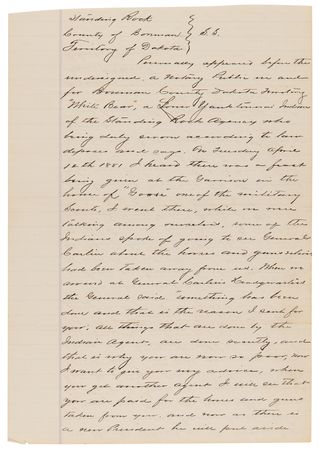 Standing Rock
County of Borman } S.S.
Territory of Dakota
Personally appeared before the
undersigned, a Notary Public in and
for Bowman County Dakota Territory
"White Bear", a Yanktonnai Indian
of the Standing Rock Agency who
being duly sworn according to law
deposes and says. On Tuesday April
12th 1881 I heard there was a feast
being given at the Garrison in the
house of "Goose" one of the military
Scouts, I went there, while we were
talking among ourselves, some of the
Indians spoke of going to see General
Carlin about the horses and guns which
had been taken away from us. When we
arrived at General Carlin's Headquarters
the General said "something has been
done and that is the reason I sent for
you; all things that are done by the
Indian Agent, are done secretly, and
that is why you are now so poor, now
I want to give you my advice, when
you get another agent I will see that
you are paid for the horses and guns
taken from you. and now as there is
a new President he will put aside